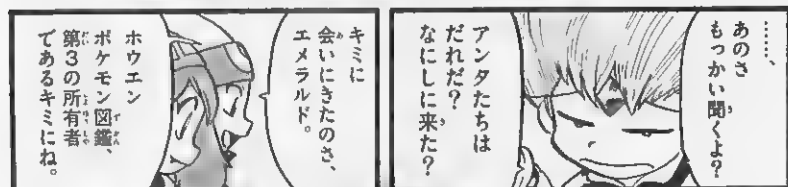 ……、
あのさ
もっかい聞くよ？
アンタたちは
だれだ？
なにしに来た？
キミに
会いにきたのさ、
エメラルド。
ホウエン
ポケモン図鑑、
第３の所有者
であるキミにね。